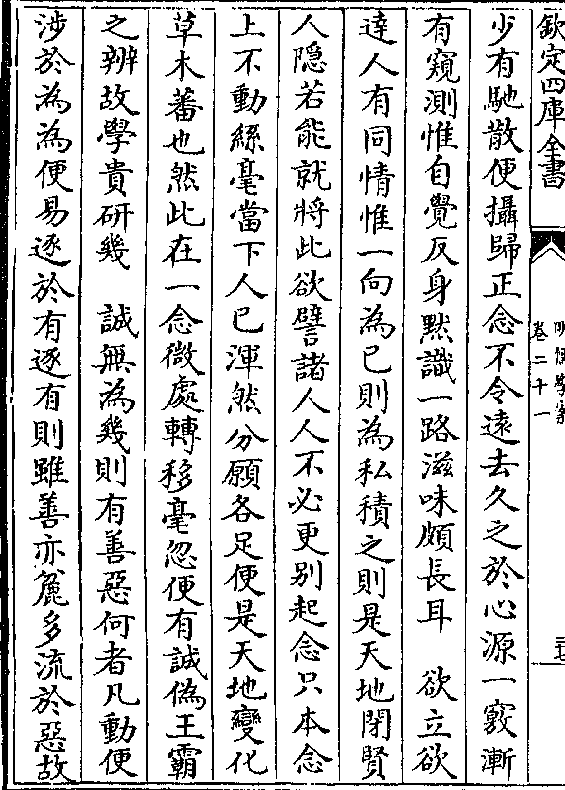 欽定四庫全書
明儒學案
卷二十一
三七
少有馳散便攝歸正念不令遠去久之於心源一竅漸
有窺測惟自覺反身黙識一路滋味頗長耳　欲立欲
達人有同情惟一向為已則為私積之則是天地閉賢
人隱若能就將此欲譬諸人人不必更别起念只本念
上不動絲毫當下人已渾然分願各足便是天地變化
草木蕃也然此在一念微處轉移毫忽便有誠偽王霸
之辨故學貴研幾　誠無為幾則有善惡何者凡動便
涉於為為便易逐於有逐有則雖善亦麄多流於惡故